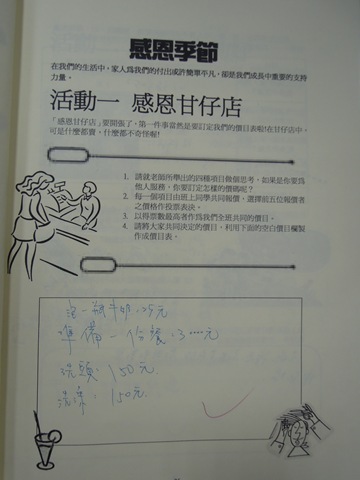 感恩季節
在我們的生活中，家人為我們的付出或許簡單平凡，卻是我們成長中重要的支持
力量。
活動一 感恩甘仔店
「感恩甘仔店」要開張了，第一件事當然是要訂定我們的價目表啦!在甘仔店中，
可是什麼都賣，什麼都不奇怪喔!
1. 請就老師所舉出的四種項目做個思考，如果是你要為
他人服務，你要訂定怎樣的價碼呢？
2. 每一個項目由班上同學共同報價，選擇前五位報價者
之價格作投票表決。
3. 以得票數最高者作為我們全班共同的價目。
4. 請將大家共同決定的價目，利用下面的空白價目欄製
作成價目表。
一瓶牛奶：25元
準備一份餐：3元
洗頭：150元
洗澡：150元